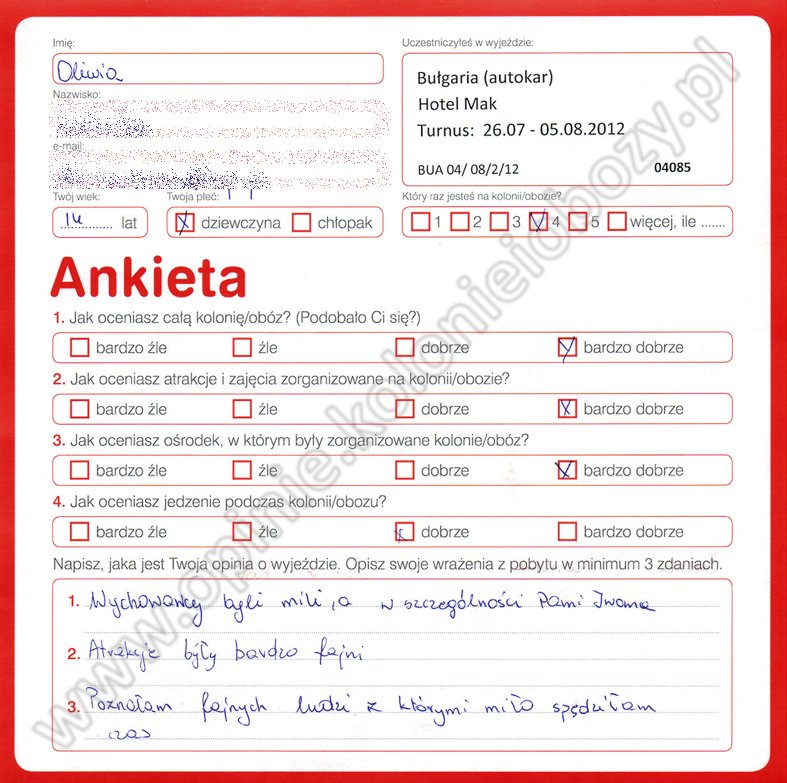 Imię:
Oliwia
Nazwisko:
e-mail:
Twój wiek:
14 lat
Twoja płeć:
dziewczyna chłopak
Uczestniczyłeś w wyjeździe:
Bułgaria (autokar)
Hotel Mak
Turnus: 26.07 - 05.08.2012
BUA 04/ 08/2/12 04085
Który raz jesteś na kolonii/obozie?
1 2 3 4 5 więcej, ile .......
Ankieta
1. Jak oceniasz całą kolonię/obóz? (Podobało Ci się?)
bardzo źle źle dobrze bardzo dobrze
2. Jak oceniasz atrakcje i zajęcia zorganizowane na kolonii/obozie?
bardzo źle źle dobrze bardzo dobrze
3. Jak oceniasz ośrodek, w którym były zorganizowane kolonie/obóz?
bardzo źle źle dobrze bardzo dobrze
4. Jak oceniasz jedzenie podczas kolonii/obozu?
bardzo źle źle dobrze bardzo dobrze
Napisz, jaka jest Twoja opinia o wyjeździe. Opisz swoje wrażenia z pobytu w minimum 3 zdaniach.
1. Wychowawcy byli mili, a w szczególności Pani Iwona
2. Atrakcje były bardzo fajni
3. Poznałam fajnych ludzi z którymi miło spędziłam
czas
www.opinie.kolonieiobozy.pl